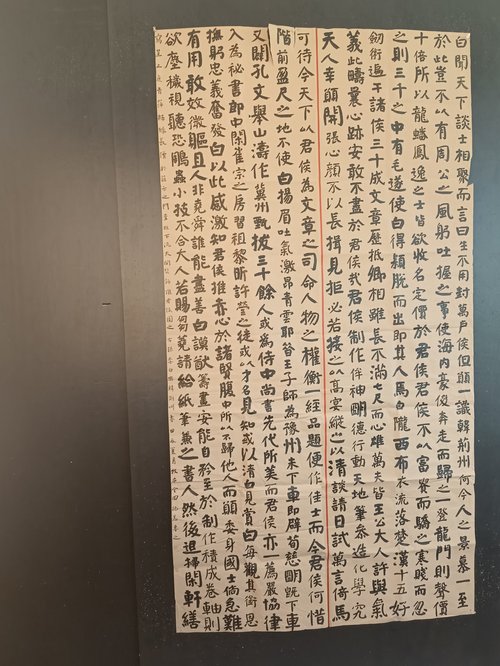 白聞天下談士相聚而言曰生不用封萬户侯但願一識韓荊州何令人之景慕一至
於此豈不以有周公之風躬吐握之事使海内豪俊奔走而歸之一登龍門則聲價
十倍所以龍蟠鳳逸之士皆欲收名定價於君侯君侯不以富貴而驕之寒賤而忽
之則三千之中有毛遂使白得穎脱而出即其人焉白隴西布衣流落楚漢十五好
劍術遍干諸侯三十成文章歷抵卿相雖長不滿七尺而心雄萬夫皆王公大人許與氣
義此疇曩心跡安敢不盡於君侯哉君侯制作侔神明德行動天地筆參造化學究
天人幸願開張心顏不以長揖見拒必若接之以高宴縱之以清談請日試萬言倚馬
可待今天下以君侯為文章之司命人物之權衡一經品題便作佳士而今君侯何惜
階前盈尺之地不使白揚眉吐氣激昂青雲耶昔王子師為豫州未下車即辟荀慈明既下車
又闢孔文舉山濤作冀州甄拔三十餘人或為侍中尚書先代所美而君侯亦一薦嚴協律
入為秘書郎中間崔宗之房習祖黎昕許瑩之徒或以才名見知或以清白見賞白每觀其銜恩
撫躬忠義奮發白以此感激知君侯推赤心於諸賢腹中所以不歸他人而願委身國士倘急難
有用敢效微軀且人非堯舜誰能盡善白謨猷籌畫安能自矜至於制作積成卷軸則
欲塵穢視聽恐鵰蟲小技不合大人若賜芻蕘請給紙筆兼之書人然後退掃閑軒繕
寫呈上庶青萍結綠長價於薛卞之門幸推下流大開獎飾唯君侯圖之